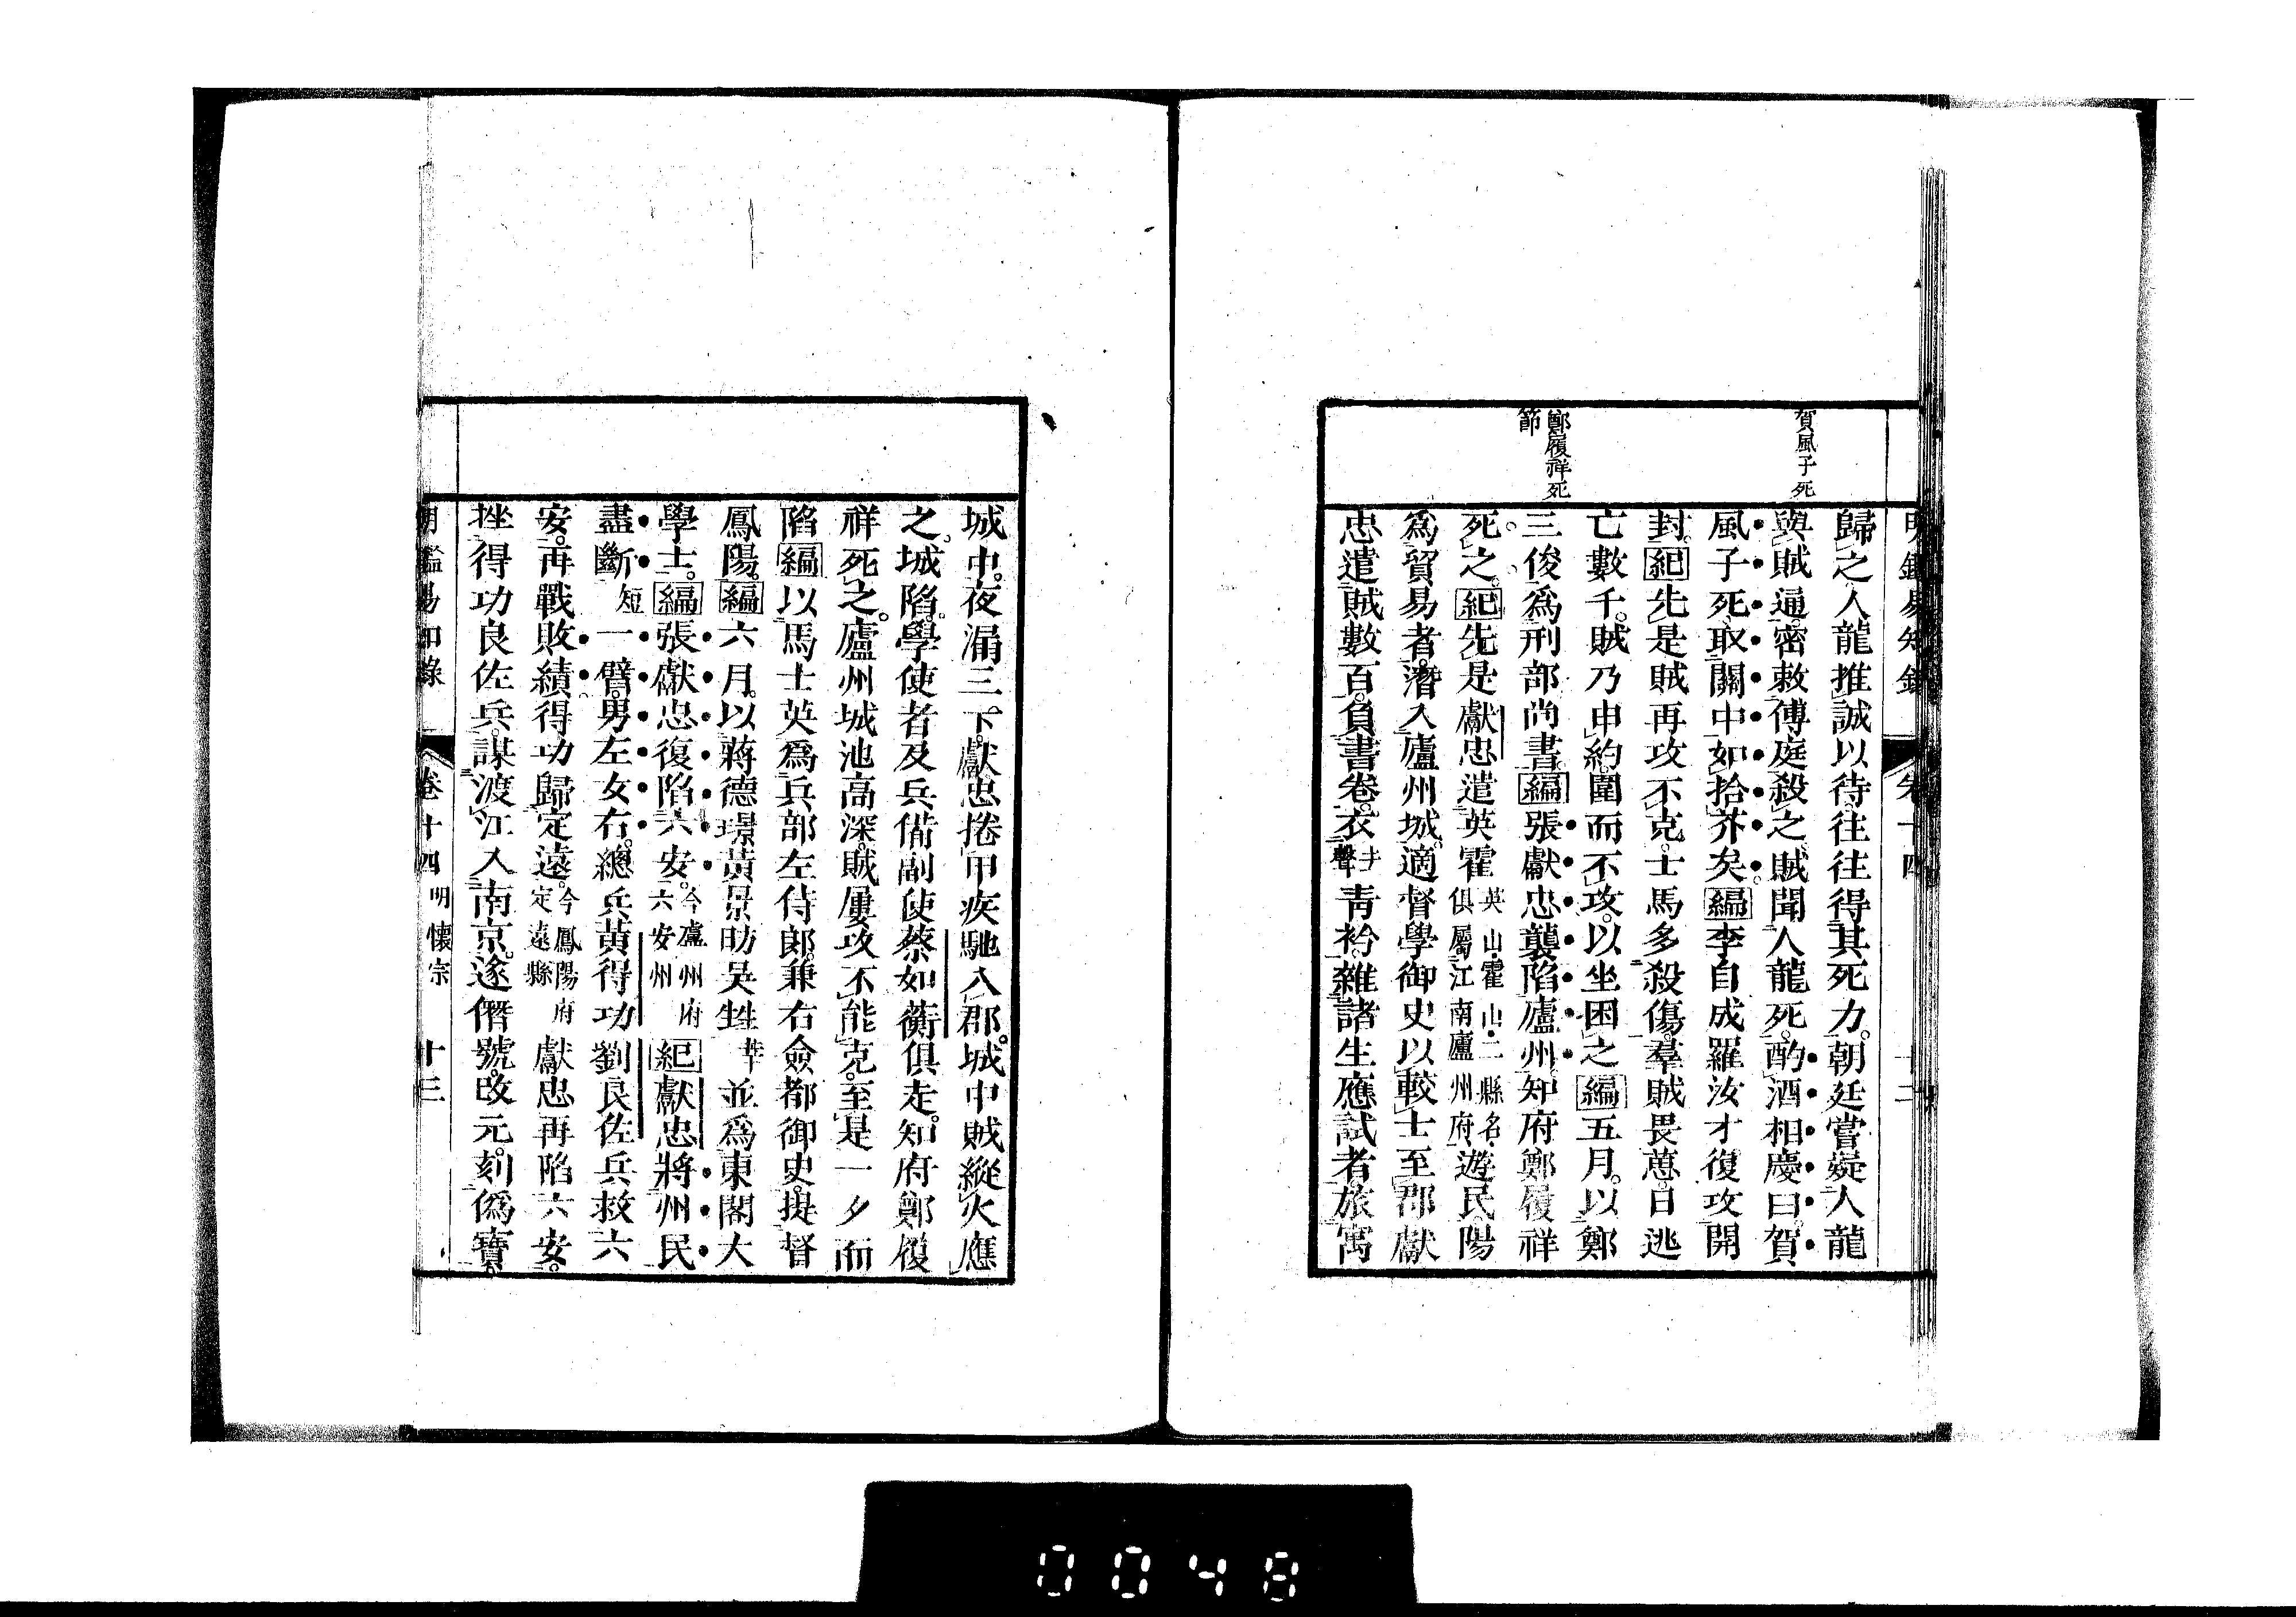 賀風子死
鄭履祥死
節
歸之人龍推誠以待往往得其死力。朝廷嘗疑人龍
與賊通。密敕傅庭殺之。賊聞人龍死。酌酒相慶曰。賀
風子死。取關中如拾芥矣。編李自成羅汝才復攻開
封。紀先是賊再攻不克。士馬多殺傷。羣賊畏葸。日逃
亡數千。賊乃申約圍而不攻。以坐困之編五月。以鄭
三俊爲刑部尚書。編張獻忠襲陷廬州。知府鄭履祥
死之。紀先是獻忠遣英霍英山霍山二縣名俱屬江南廬州府遊民。陽
爲貿易者。潛入廬州城。適督學御史以較士至郡獻
忠遣賊數百。負書卷。衣去聲靑衿。雜諸生應試者。旅寓
城中。夜漏三下。獻忠捲甲疾馳入郡。城中賊縱火應
之。城陷。學使者及兵備副使蔡如蘅俱走。知府鄭履
祥死之。廬州城池高深。賊屢攻不能克。至是一夕而
陷編以馬士英爲兵部左侍郎。兼右僉都御史。提督
鳳陽。編六月。以蔣德璟黃景昉吳甡並爲東閣大
學士。編張獻忠復陷六安。今廬州府六安州紀獻忠將州民
盡斷短一臂。男左女右。總兵黃得功劉良佐兵救六
安。再戰敗績得功歸定遠。今鳳陽府定遠縣獻忠再陷六安。
挫得功良佐兵。謀渡江入南京。遂僭號。改元。刻僞寶。
明鑑易知錄 卷十四 明懷宗 廿三